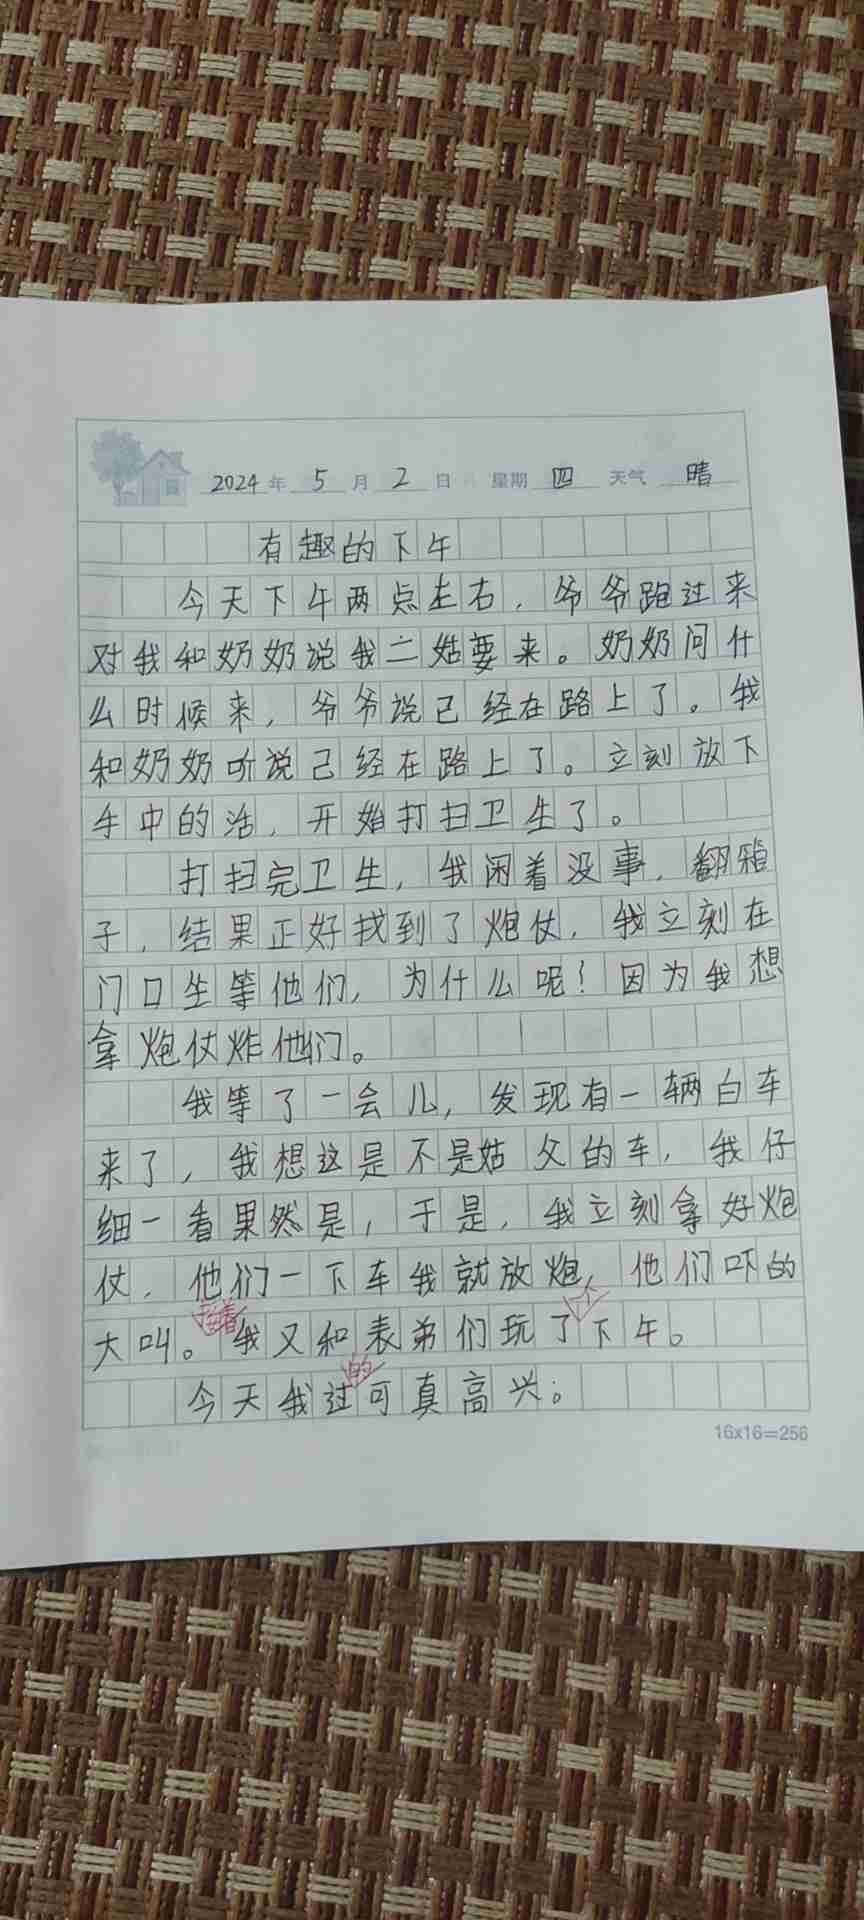 2024年 5月 2日 星期 四 天气 晴
有趣的下午
今天下午两点左右，爷爷跑过来
对我和奶奶说我二姑要来。奶奶问什
么时候来，爷爷说已经在路上了。我
和奶奶听说已经在路上了。立刻放下
手中的活，开始打扫卫生了。
打扫完卫生，我闲着没事，翻箱
子，结果正好找到了炮仗，我立刻在
门口坐等他们，为什么呢！因为我想
拿炮仗炸他们。
我等了一会儿，发现有一辆白车
来了，我想这是不是姑父的车，我仔
细一看果然是，于是，我立刻拿好炮
仗，他们一下车我就放炮，他们吓的
大叫。接着我又和表弟们玩了一个下午。
今天我过的可真高兴。
16x16=256